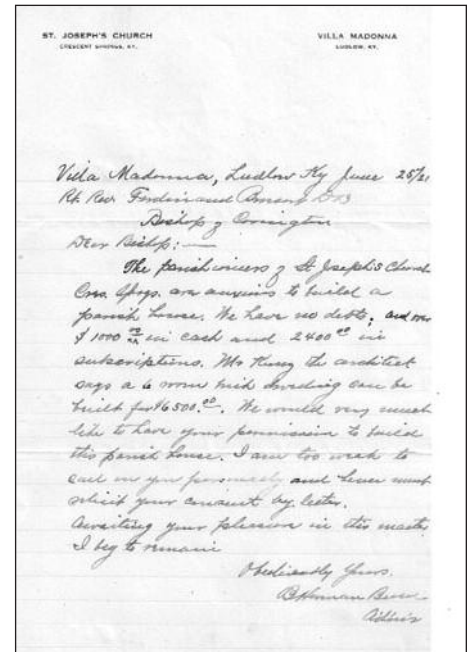 ST. JOSEPH'S CHURCH
CRESCENT SPRINGS, KY.
VILLA MADONNA
LUDLOW, KY.
Villa Madonna, Ludlow Ky June 25/21
Rt. Rev. Ferdinand
Bishop of Covington
Dear Bishop: —
The parishioners of St Joseph's Church
Cres. Spgs. are anxious to build a
parish house. We have no debts; and over
$1000 00 in cash and 2400 00 in
subscriptions. Mr Kunz the architect
says a 6 room dwelling can be
built for $6500.00. We would very much
like to have your permission to build
this parish house. I am too weak to
call on you personally and hence must
solicit your consent by letter.
Awaiting your in this matter
I beg to remain
Obediently Yours.